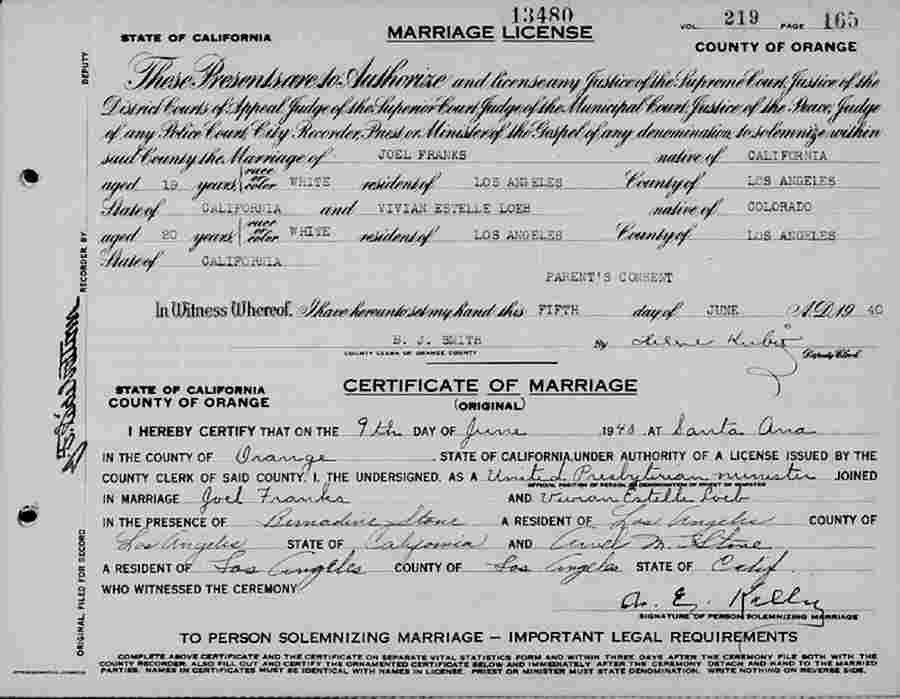 13480
STATE OF CALIFORNIA MARRIAGE LICENSE VOL 219 PAGE 165
COUNTY OF ORANGE
These Presents are to Authorize and license any Justice of the Supreme Court, Justice of the
District Courts of Appeal, Judge of the Superior Court, Judge of the Municipal Court, Justice of the Peace, Judge
of any Police Court, City Recorder, Priest or Minister of the Gospel of any denomination, to solemnize within
said County the Marriage of JOEL FRANKS native of CALIFORNIA
aged 19 years, race or color WHITE resident of LOS ANGELES County of LOS ANGELES
State of CALIFORNIA and VIVIAN ESTELLE LOEB native of COLORADO
aged 20 years, race or color WHITE resident of LOS ANGELES County of LOS ANGELES
State of CALIFORNIA
PARENT'S CONSENT
In Witness Whereof, I have hereunto set my hand this FIFTH day of JUNE A.D. 19 40
B. J. SMITH By
COUNTY CLERK OF ORANGE COUNTY Deputy Clerk
STATE OF CALIFORNIA CERTIFICATE OF MARRIAGE
COUNTY OF ORANGE (ORIGINAL)
I HEREBY CERTIFY THAT ON THE 9th DAY OF June 1940 AT Santa Ana
IN THE COUNTY OF Orange, STATE OF CALIFORNIA, UNDER AUTHORITY OF A LICENSE ISSUED BY THE
COUNTY CLERK OF SAID COUNTY, I, THE UNDERSIGNED, AS A United Presbyterian minister JOINED
OFFICIAL POSITION OF PERSON OR DENOMINATION OF PRIEST OR MINISTER
IN MARRIAGE Joel Franks AND Vivian Estelle Loeb
IN THE PRESENCE OF Bernadine Stone A RESIDENT OF Los Angeles COUNTY OF
Los Angeles STATE OF California AND M. Stone
A RESIDENT OF Los Angeles COUNTY OF Los Angeles STATE OF Calif.
WHO WITNESSED THE CEREMONY
A. E. Kelly
SIGNATURE OF PERSON SOLEMNIZING MARRIAGE
TO PERSON SOLEMNIZING MARRIAGE — IMPORTANT LEGAL REQUIREMENTS
COMPLETE ABOVE CERTIFICATE AND THE CERTIFICATE ON SEPARATE VITAL STATISTICS FORM AND WITHIN THREE DAYS AFTER THE CEREMONY FILE BOTH WITH THE
COUNTY RECORDER. ALSO FILL OUT AND CERTIFY THE ORNAMENTED CERTIFICATE BELOW AND IMMEDIATELY AFTER THE CEREMONY DETACH AND HAND TO THE MARRIED
PARTIES. NAMES IN CERTIFICATES MUST BE IDENTICAL WITH NAMES IN LICENSE. PRIEST OR MINISTER MUST STATE DENOMINATION. WRITE NOTHING ON REVERSE SIDE.
ORIGINAL FILED FOR RECORD
RECORDER BY
DEPUTY